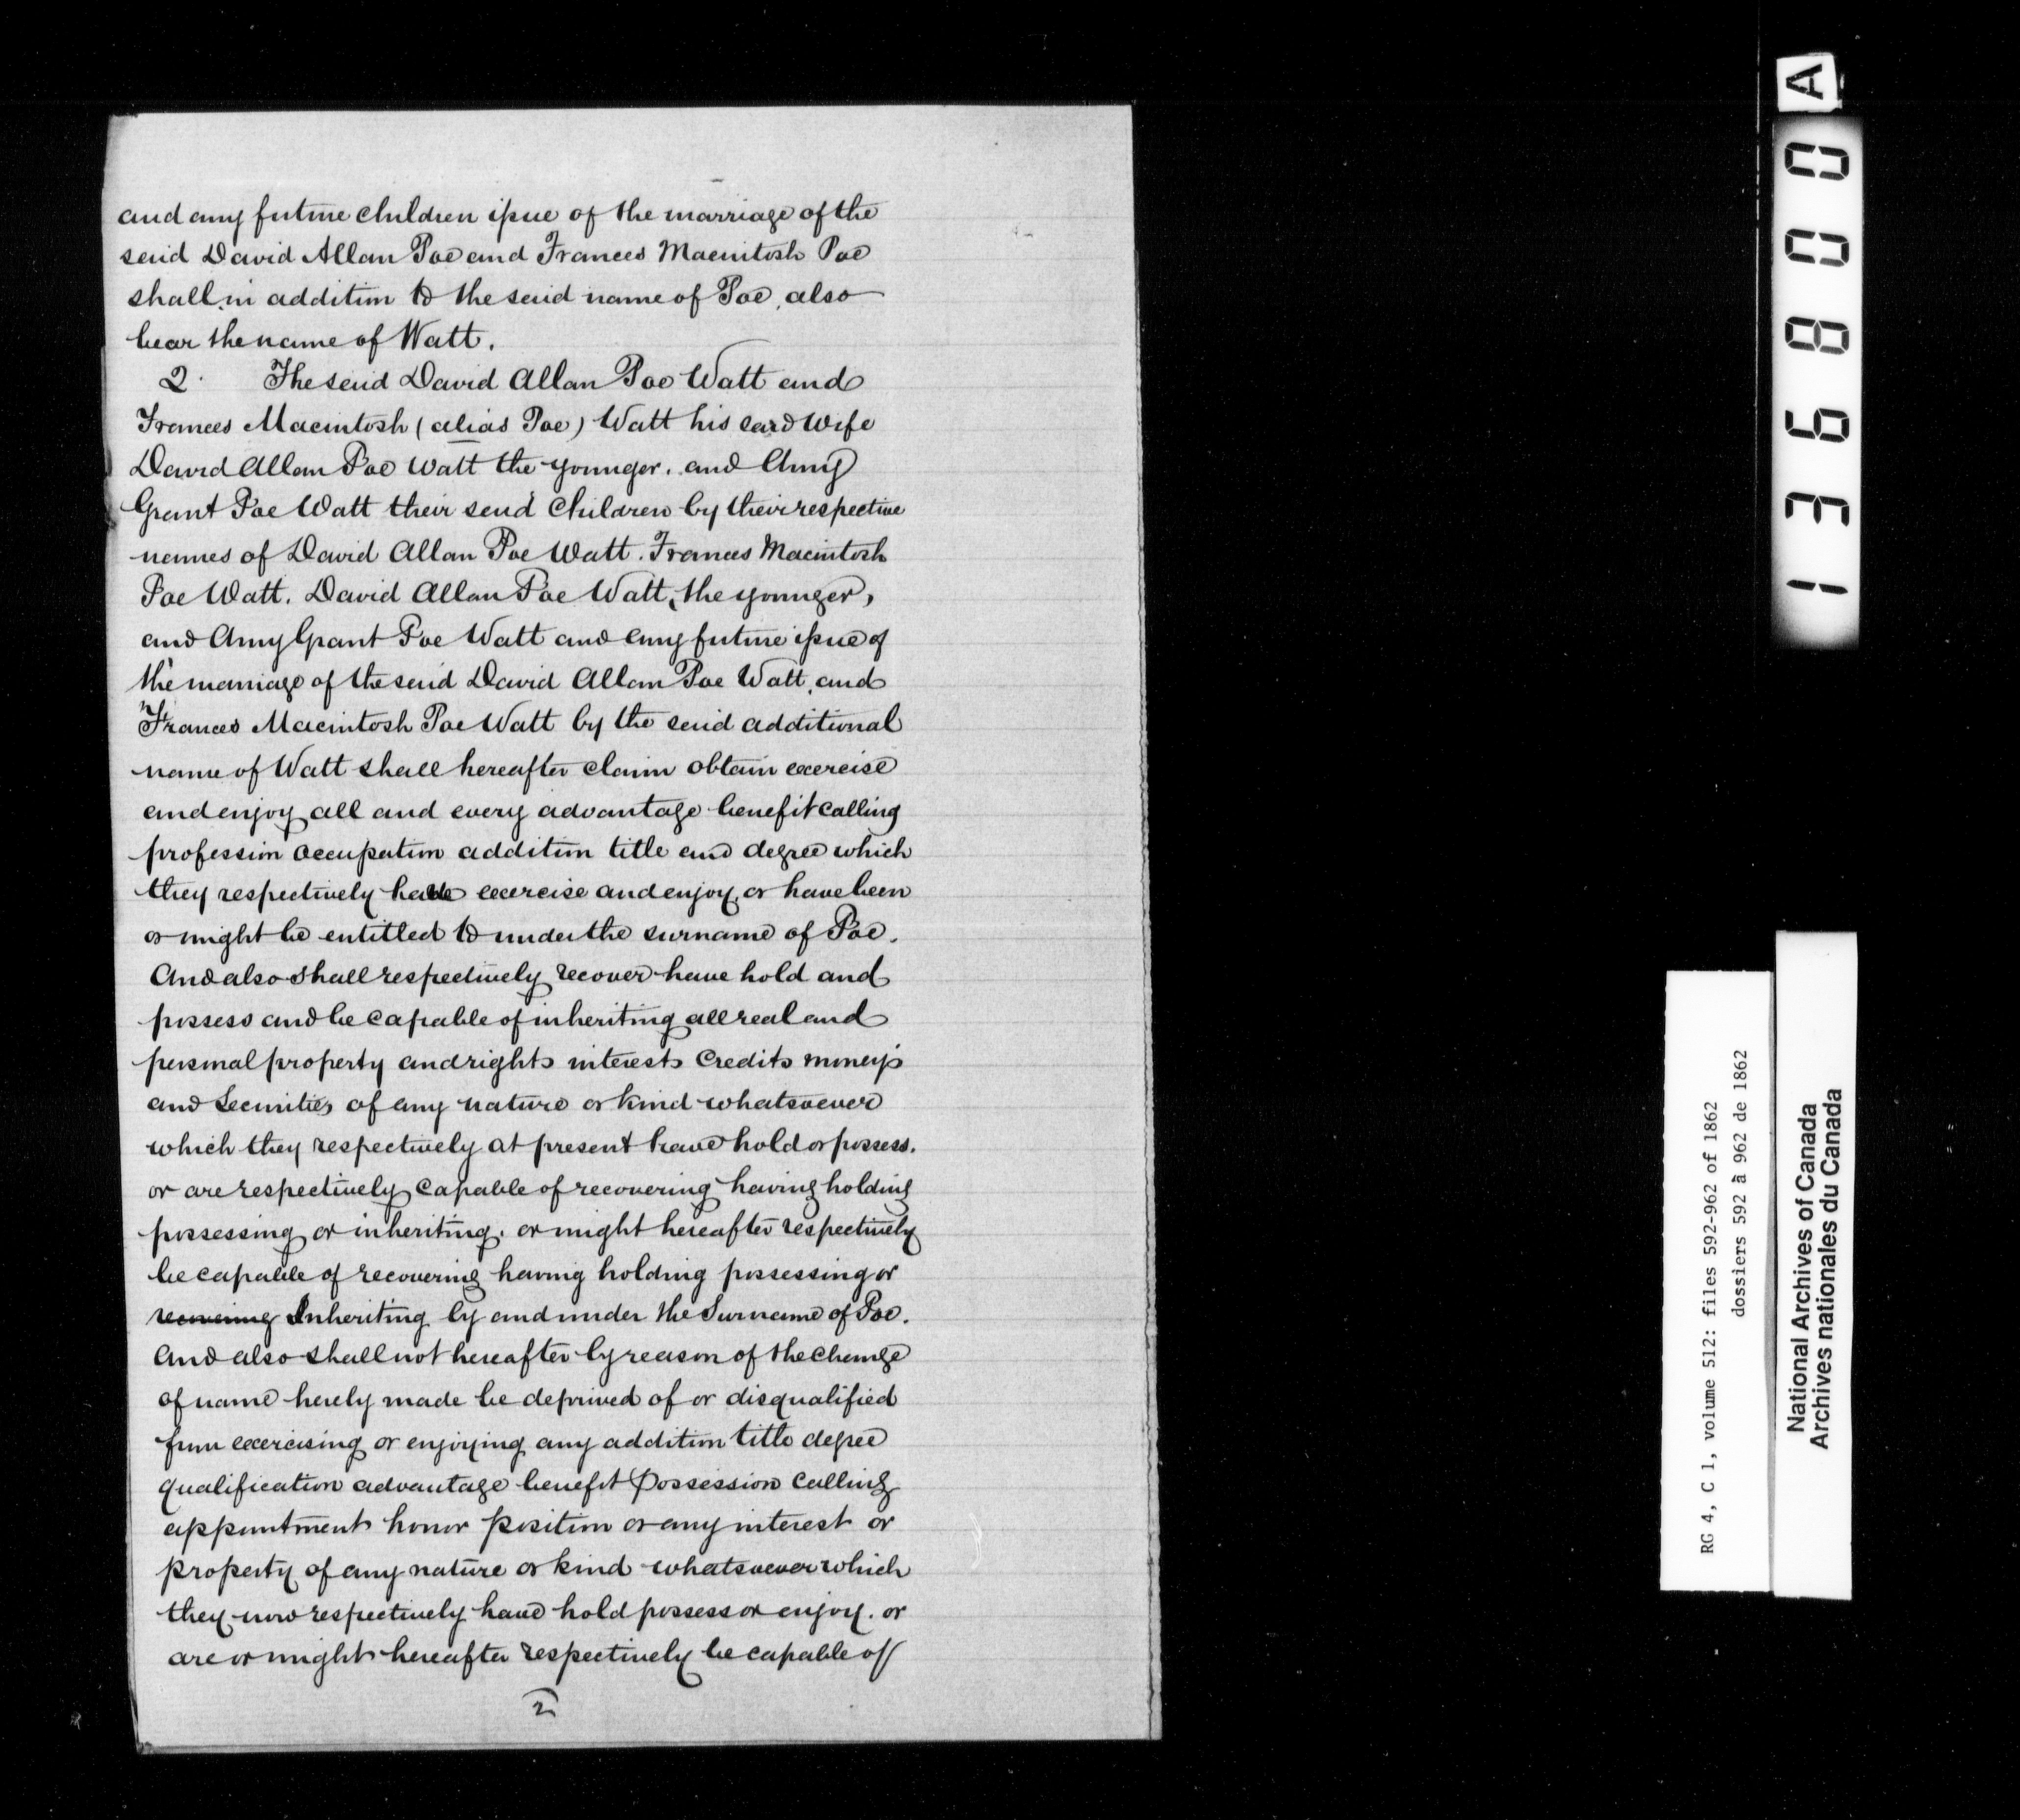 and any future children issue of the marriage of the
said David Allan Poe and Frances Macintosh Poe
shall in addition to the said name of Poe, also
bear the name of Watt.
2. The said David Allan Poe Watt and
Frances Macintosh (alias Poe) Watt his said Wife
David Allan Poe Watt the younger. and Amy
Grant Poe Watt their said Children by their respective
names of David Allan Poe Watt. Frances Macintosh
Poe Watt. David Allan Poe Watt, the younger,
and Amy Grant Poe Watt and any future issue of
the marriage of the said David Allan Poe Watt, and
Frances Macintosh Poe Watt by the said additional
name of Watt shall hereafter claim obtain exercise
and enjoy all and every advantage benefit calling
profession occupation addition title and degree which
they respectively have exercise and enjoy, or have been
or might be entitled to under the surname of Poe.
And also shall respectively recover have hold and
possess and be capable of inheriting all real and
personal property and rights interests Credits moneys
and Securities of any nature or kind whatsoever
which they respectively at present have hold or possess.
or are respectively capable of recovering having holding
possessing or inheriting. or might hereafter respectively
be capable of recovering having holding possessing or
recovering Inheriting by and under the Surname of Poe.
And also shall not hereafter by reason of the change
of name hereby made be deprived of or disqualified
from exercising or enjoying any addition title degree
qualification advantage benefit Possession calling
appointment honor position or any interest or
property of any nature or kind whatsoever which
they now respectively have hold possess or enjoy. or
are or might hereafter respectively be capable of
2
136800 A
RG 4, C 1, volume 512: files 592-962 of 1862
dossiers 592 à 962 de 1862
National Archives of Canada
Archives nationales du Canada